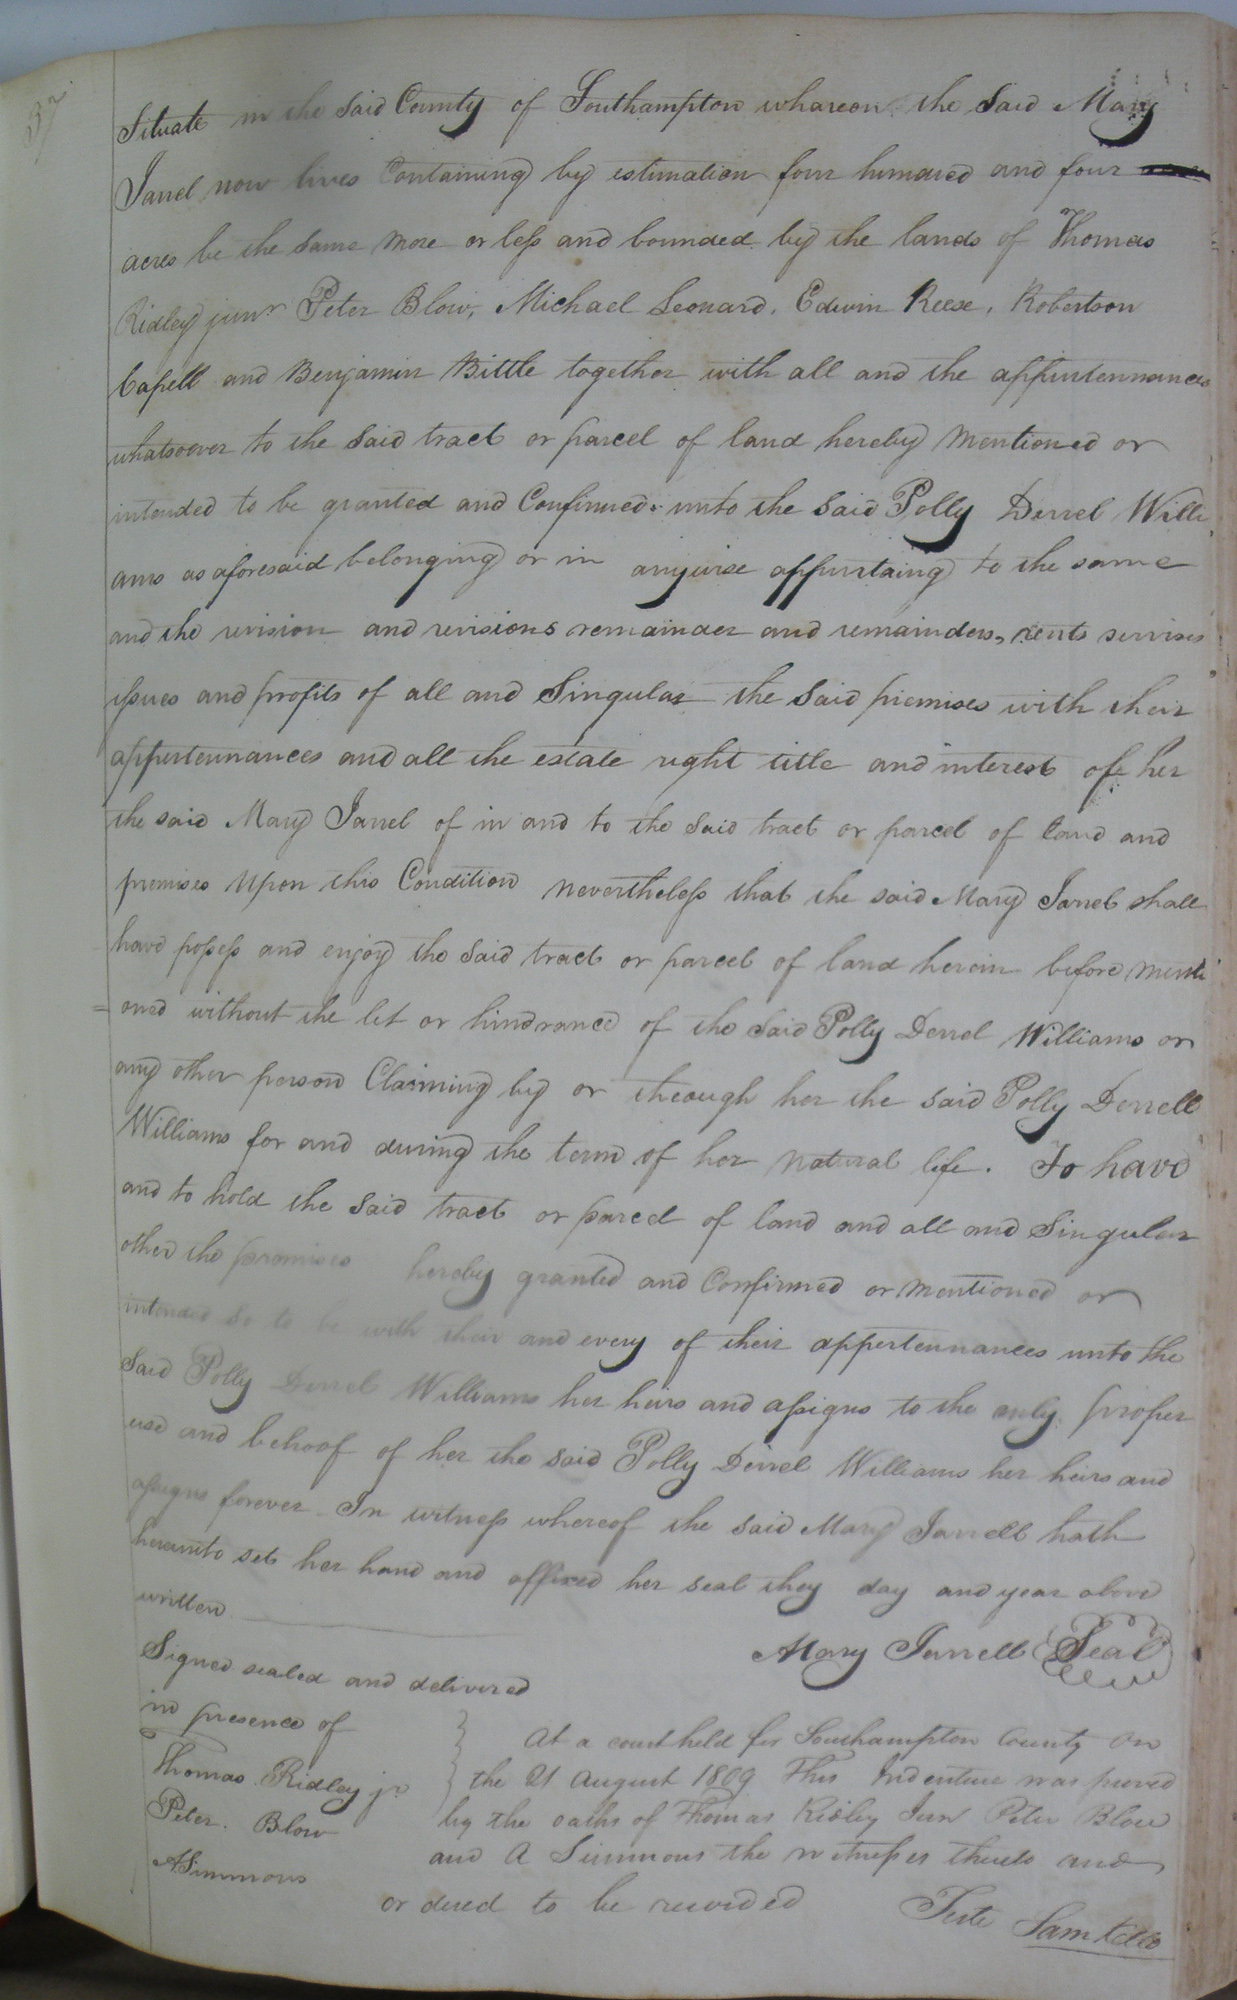 37
Situate in the said County of Southampton whareon the said Mary
Jarrel now lives Containing by estimation four hundred and four
acres be the same more or less and bounded by the lands of Thomas
Ridley junr Peter Blow, Michael Leonard, Edwin Reese, Robertson
Capell and Benjamin Bittle together with all and the appurtennances
whatsoever to the said tract or parcel of land hereby mentioned or
intended to be granted and Confirmed unto the said Polly Derrel Willi
ams as aforesaid belonging or in anywise appurtaing to the same
and the revision and revisions remainder and remainders, rents servises
issues and profits of all and Singular the said premises with their
appertennances and all the estate right title and interest of her
the said Mary Jarrel of in and to the said tract or parcel of land and
premises upon this Condition nevertheless that the said Mary Jarrel shall
have possess and enjoy the said tract or parcel of land herein before menti
=oned without the let or hindrance of the said Polly Derrel Williams or
any other person Claiming by or through her the said Polly Derrell
Williams for and during the term of her natural life. To have
and to hold the said tract or parcel of land and all and Singular
other the premises hereby granted and Confirmed or mentioned or
intended so to be with their and every of their appertennances unto the
said Polly Derrel Williams her heirs and assigns to the only proper
use and behoof of her the said Polly Derrel Williams her heirs and
assigns forever In witness whereof the said Mary Jarrell hath
hereunto set her hand and affixed her seal they day and year above
written
Mary Jarrell Seal
Signed sealed and delivered
in presence of
Thomas Ridley jr
Peter. Blow
A Simmons
At a court held for Southampton County on
the 21 August 1809 This Indenture was proved
by the oaths of Thomas Ridley Jun Peter Blow
and A Simmons the witnesses thereto and
ordered to be recorded
Teste Sam Kello